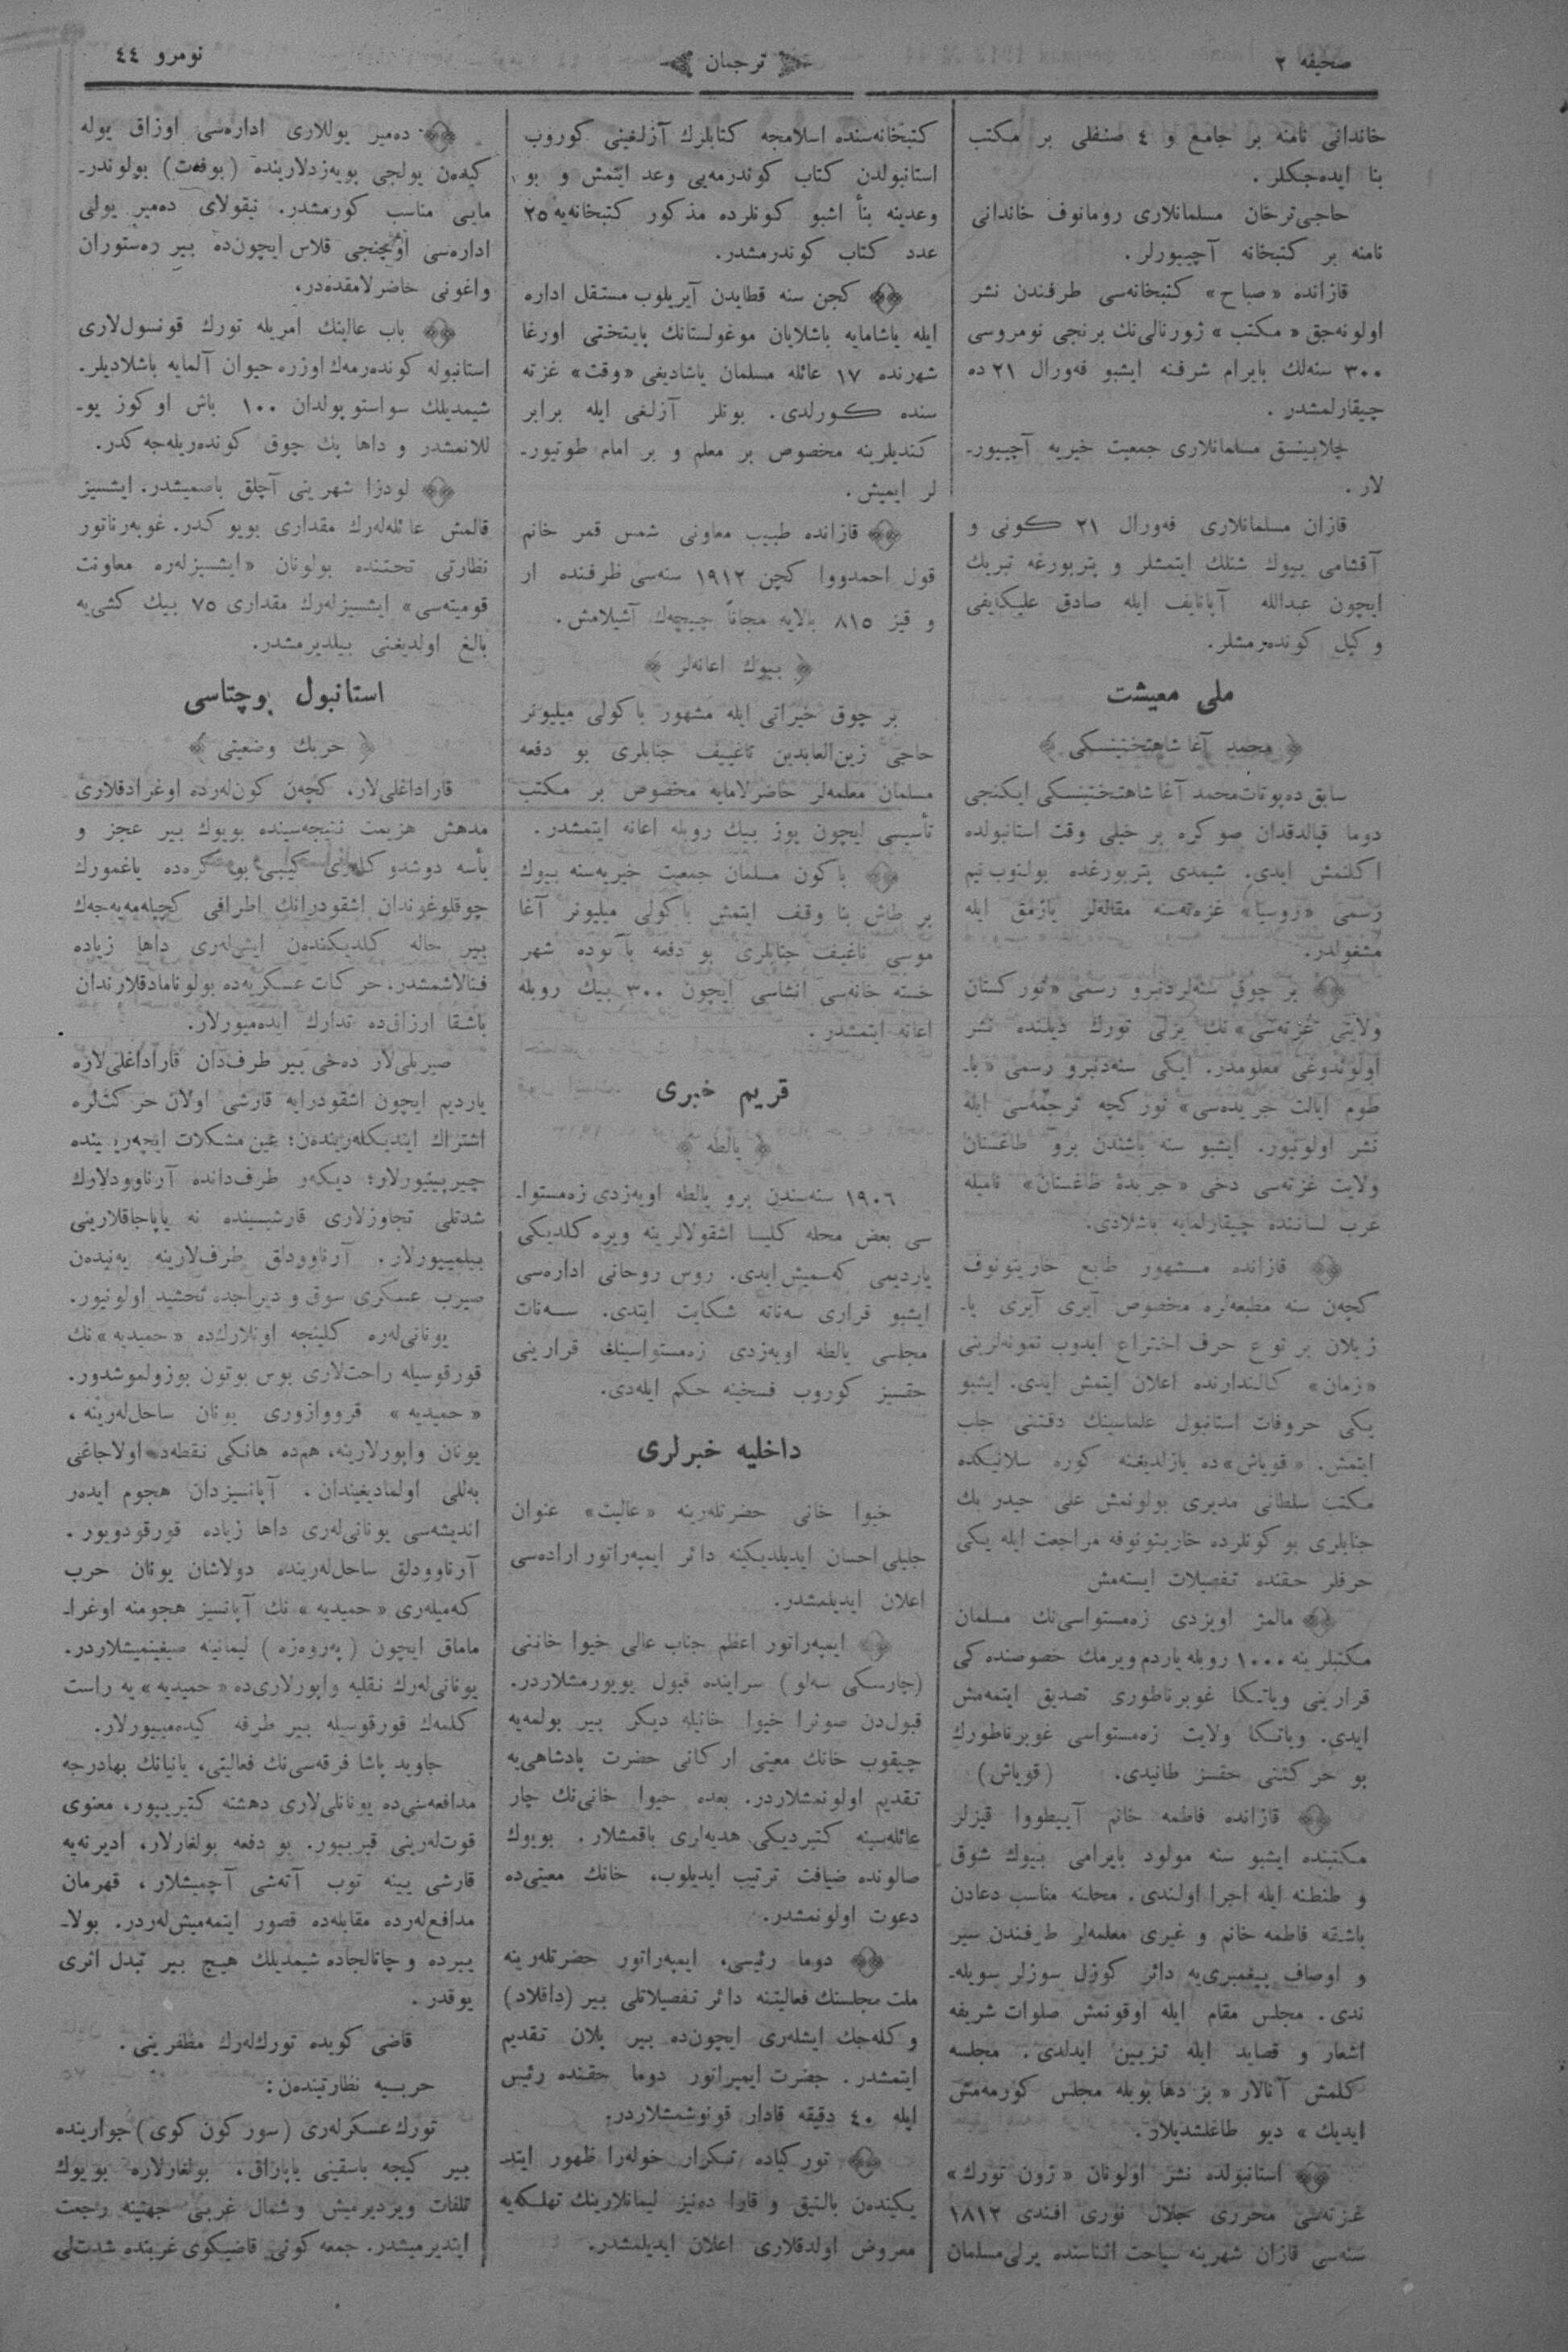 صحیفه ۲
ترجمان
نومرو ٤٤
خاندانی نامنه بر جامع و ٤ صنفلی بر مكتب
بنا ایده‌جكلر .
حاجی‌ترخان مسلمانلاری رومانوف خاندانی
نامنه بر كتبخانه آچییورلر .
قازانده «صباح» كتبخانه‌سی طرفندن نشر
اولونه‌جق «مكتب» ژورنالی‌نك برنجی نومروسی
۳۰۰ سنه‌لك بایرام شرفنه ایشبو فه‌ورال ۲۱ ده
چیقارلمشدر .
چلابینسق مسلمانلاری جمعیت خیریه آچییور-
لار .
قازان مسلمانلاری فه‌ورال ۲۱ كونی و
آقشامی بیوك شنلك ایتمشلر و پتربورغه تبریك
ایچون عبدالله آپانایف ایله صادق علیكایفی
وكیل كونده‌رمشلر.
ملی معیشت
﴿ محمد آغا شاهتختینسكی ﴾
سابق ده‌پوتات‌محمد آغا شاهتختینسكی ایكنجی
دوما قپالدقدان صوكره بر خیلی وقت استانبولده
اكلنمش ایدی. شیمدی پتربورغده بولنوب نیم
رسمی «روسیا» غزه‌ته‌سنه مقاله‌لر یازمق ایله
مشغولدر.
بر چوق سنه‌لردنبرو رسمی «توركستان
ولایتی غزته‌سی» نك یرلی تورك دیلنده نشر
اولوندوغی معلومدر. ایكی سنه‌دنبرو رسمی «با-
طوم ایالت جریده‌سی» توركچه ترجمه‌سی ایله
نشر اولونیور. ایشبو سنه باشندن برو طاغستان
ولایت غزته‌سی دخی «جریدهٔ طاغستان» نامیله
عرب لساننده چیقارلمایه باشلادی.
قازانده مشهور طابع خاریتونوف
كچه‌ن سنه مطبعه‌لره مخصوص آیری آیری یا-
زیلان بر نوع حرف اختراع ایدوب نمونه‌لرینی
«زمان» كالندارنده اعلان ایتمش ایدی. ایشبو
یكی حروفات استانبول علماسینك دقتنی جلب
ایتمش. «قویاش»ده یازلدیغنه كوره سلانیكده
مكتب سلطانی مدیری بولونمش علی حیدر بك
جنابلری بو كونلرده خاریتونوفه مراجعت ایله یكی
حرفلر حقنده تفصیلات ایسته‌مش
مالمژ اویزدی زه‌مستواسی‌نك مسلمان
مكتبلرینه ۱۰۰۰ روبله یاردم ویرمك خصوصنده‌كی
قرارینی ویاتكا غوبرناطوری تصدیق ایتمه‌مش
ایدی. ویاتكا ولایت زه‌مستواسی غوبرناطورك
بو حركتنی حقسز طانیدی. (قویاش)
قازانده فاطمه خانم آییطووا قیزلر
مكتبنده ایشبو سنه مولود بایرامی بیوك شوق
و طنطنه ایله اجرا اولندی. محلنه مناسب دعادن
باشقه فاطمه خانم و غیری معلمه‌لر طرفندن سیر
و اوصاف پیغمبری‌یه دائر كوزل سوزلر سویله-
ندی. مجلس مقام ایله اوقونمش صلوات شریفه
اشعار و قصاید ایله تزیین ایدلدی. مجلسه
كلمش آنالار «بز دها بویله مجلس كورمه‌مش
ایدیك» دیو طاغلشدیلار.
استانبولده نشر اولونان «ژون تورك»
غزته‌سی محرری جلال نوری افندی ۱۸۱۲
سنه‌سی قازان شهرینه سیاحت اثناسنده یرلی‌مسلمان
كتبخانه‌سنده اسلامجه كتابلرك آزلغینی كوروب
استانبولدن كتاب كوندرمه‌یی وعد ایتمش و بو
وعدینه بنأ اشبو كونلرده مذكور كتبخانه‌یه ۲۵
عدد كتاب كوندرمشدر.
كچن سنه قطایدن آیریلوب مستقل اداره
ایله یاشامایه باشلایان موغولستانك پایتختی اورغا
شهرنده ۱۷ عائله مسلمان یاشادیغی «وقت» غزته
سنده كورلدی. بونلر آزلغی ایله برابر
كندیلرینه مخصوص بر معلم و بر امام طوتیور-
لر ایمیش.
قازانده طبیب معاونی شمس قمر خانم
قول احمدووا كچن ۱۹۱۲ سنه‌سی ظرفنده ار
و قیز ۸۱۵ بالایه مجاناً چیچه‌ك آشیلامش.
﴿ بیوك اعانه‌لر ﴾
بر چوق خیراتی ایله مشهور باكولی میلیونر
حاجی زین‌العابدین تاغییف جنابلری بو دفعه
مسلمان معلمه‌لر حاضرلامایه مخصوص بر مكتب
تأسیسی ایچون یوز بیك روبله اعانه ایتمشدر.
باكون مسلمان جمعیت خیریه‌سنه بیوك
بر طاش بنا وقف ایتمش باكولی میلیونر آغا
موسی ناغیف جنابلری بو دفعه باكوده شهر
خسته خانه‌سی انشاسی ایچون ۳۰۰ بیك روبله
اعانه ایتمشدر.
قریم خبری
﴿ یالطه ﴾
۱۹۰٦ سنه‌سندن برو یالطه اویه‌زدی زه‌مستوا-
سی بعض محله كلیسا اشقولالرینه ویره كلدیكی
یاردیمی كه‌سمیش‌ایدی. روس روحانی اداره‌سی
ایشبو قراری سه‌ناته شكایت ایتدی. سه‌نات
مجلسی یالطه اویه‌زدی زه‌مستواسینك قرارینی
حقسیز كوروب فسخینه حكم ایله‌دی.
داخلیه خبرلری
خیوا خانی حضرتله‌رینه «عالیت» عنوان
جلیلی احسان ایدیلدیكینه دائر ایمپه‌راتور اراده‌سی
اعلان ایدیلمشدر.
ایمپه‌راتور اعظم جناب عالی خیوا خاننی
(چارسكی سه‌لو) سراینده قبول بویورمشلاردر.
قبول‌دن صونرا خیوا خانیله دیكر بیر بولمه‌یه
چیقوب خانك معیتی اركانی حضرت پادشاهی‌یه
تقدیم اولونمشلاردر. بعده خیوا خانی‌نك چار
عائله‌سینه كتیردیكی هدیه‌لری باقمشلار. بویوك
صالونده ضیافت ترتیب ایدیلوب، خانك معیتی‌ده
دعوت اولونمشدر.
دوما رئیسی، ایمپه‌راتور حضرتله‌رینه
ملت مجلسنك فعالیتنه دائر تفصیلاتلی بیر (داقلاد)
وكله‌جك ایشله‌ری ایچون‌ده بیر پلان تقدیم
ایتمشدر. حضرت ایمپراتور دوما حقنده رئیس
ایله ٤۰ دقیقه قادار قونوشمشلاردر.
توركیاده تكرار خوله‌را ظهور ایتد-
یكیندەن بالتیق و قارا ده‌نیز لیمانلارینك تهلكه‌یه
معروض اولدقلاری اعلان ایدیلمشدر.
ده‌میر یوللاری اداره‌سی اوزاق یوله
كیده‌ن یولجی پویه‌زدلارینده (بوفه‌ت) بولوندر-
مایی مناسب كورمشدر. نیقولای ده‌میر یولی
اداره‌سی اوچنجی قلاس ایچون‌ده بیر ره‌ستوران
واغونی حاضرلامقده‌در.
باب عالینك امریله تورك قونسول‌لاری
استانبوله كونده‌رمه‌ك اوزره حیوان آلمایه باشلادیلر.
شیمدیلك سواستوپولدان ۱۰۰ باش اوكوز یو-
للانمشدر و داها پك چوق كونده‌ریله‌جه‌كدر.
لودزا شهرینی آچلق باصمیشدر. ایشسیز
قالمش عائله‌له‌رك مقداری بویوكدر. غوبه‌رناتور
نظارتی تحتنده بولونان «ایشسیزله‌ره معاونت
قومیته‌سی» ایشسیزله‌رك مقداری ۷۵ بیك كشی‌یه
بالغ اولدیغنی بیلدیرمشدر.
استانبول پوچتاسی
﴿ حربك وضعیتی ﴾
قاراداغلی‌لار، كچه‌ن كون‌له‌رده اوغرادقلاری
مدهش هزیمت نتیجه‌سینده بویوك بیر عجز و
یأسه دوشدوكله‌ری كیبی بو كره‌ده یاغمورك
چوقلوغوندان اشقودرانك اطرافی كچیله‌مه‌یه‌جه‌ك
بیر حاله كلدیكندەن ایش‌له‌ری داها زیاده
فنالاشمشدر. حركات عسكریه‌ده بولونامادقلارندان
باشقا ارزاق‌ده تدارك ایده‌میورلار.
صیربلی‌لار ده‌خی بیر طرف‌دان قاراداغلی‌لاره
یاردیم ایچون اشقودرایه قارشی اولان حركت‌لره
اشتراك ایتدیكله‌ریندەن؛ عین مشكلات ایچه‌ریسینده
چیرپینیورلار؛ دیكه‌ر طرف‌دانده آرناوودلارك
شدتلی تجاوزلاری قارشیسینده نه یاپاجاقلارینی
بیلمییورلار. آرناوودلق طرف‌لارینه یه‌نیده‌ن
صیرب عسكری سوق و دیراجده تحشید اولونیور.
یونانی‌له‌ره كلینجه اونلارك‌ده «حمیدیه» نك
قورقوسیله راحت‌لاری بوس بوتون بوزولموشدور.
«حمیدیه» قرووازوری یونان ساحل‌له‌رینه،
یونان واپورلارینه، هم‌ده هانكی نقطه‌ده اولاجاغی
به‌للی اولمادیغیندان. آپانسیزدان هجوم ایده‌ر
اندیشه‌سی یونانی‌له‌ری داها زیاده قورقودویور.
آرناوودلق ساحل‌له‌رینده دولاشان یونان حرب
كه‌میله‌ری «حمیدیه» نك آپانسیز هجومنه اوغرا-
ماماق ایچون (پره‌وه‌زه) لیمانینه صیغینمیشلاردر.
یونانی‌له‌رك نقلیه واپورلاری‌ده «حمیدیه» یه راست
كلمه‌ك قورقوسیله بیر طرفه كیده‌مییورلار.
جاوید پاشا فرقه‌سی‌نك فعالیتی، یانیانك بهادرجه
مدافعه‌سی‌ده یونانلی‌لاری دهشته كتیرییور، معنوی
قوت‌له‌رینی قیرییور. بو دفعه بولغارلار، ادیرنه‌یه
قارشی یینه توپ آته‌شی آچمیشلار، قهرمان
مدافع‌له‌رده مقابله‌ده قصور ایتمه‌میش‌له‌ردر. بولا-
ییرده و چاتالجاده شیمدیلك هیچ بیر تبدل اثری
یوقدر.
قاضی كویده تورك‌له‌رك مظفریتی.
حربیه نظارتیندەن:
تورك عسكرله‌ری (سور كون كوی) جوارینده
بیر كیجه باسقینی یاپاراق، بولغارلاره بویوك
تلفات ویردیرمیش وشمال غربی جهتینه رجعت
ایتدیرمیشدر. جمعه كونی قاضیكوی غربنده شدت‌لی